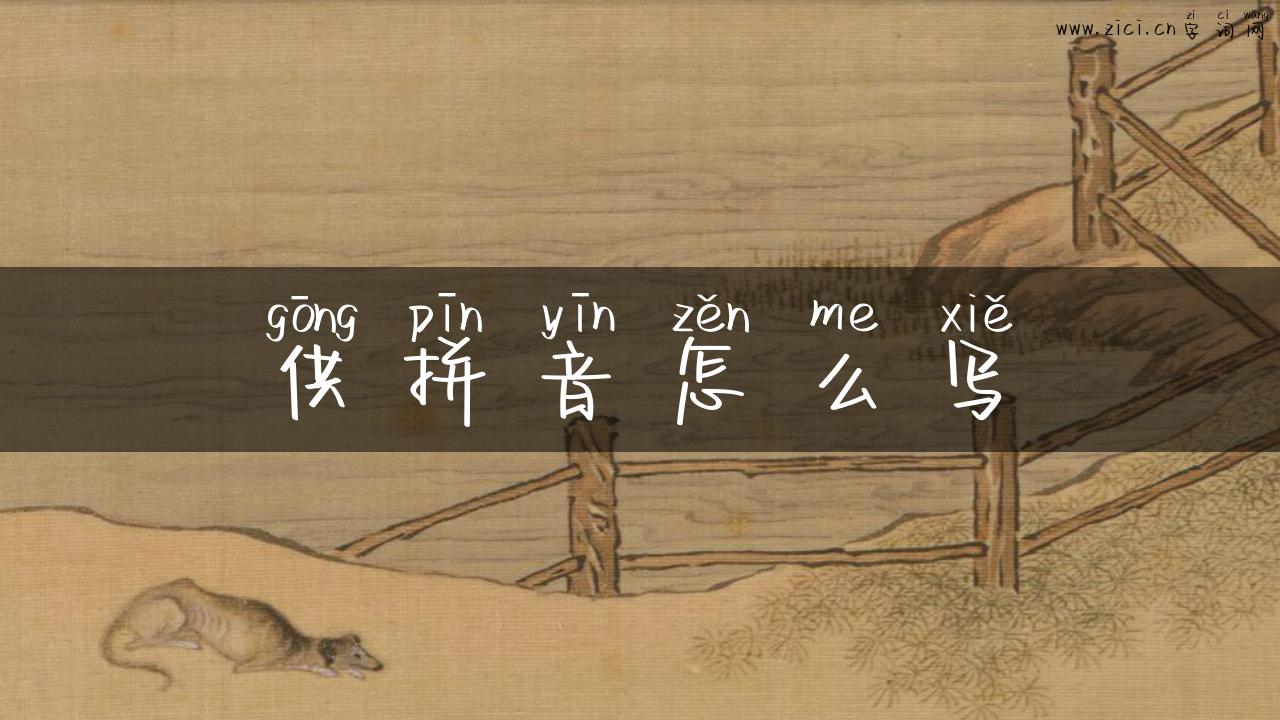 zi ci wang
www.zici.cn 字词网
gōng pīn yīn zěn me xiě
供拼音怎么写